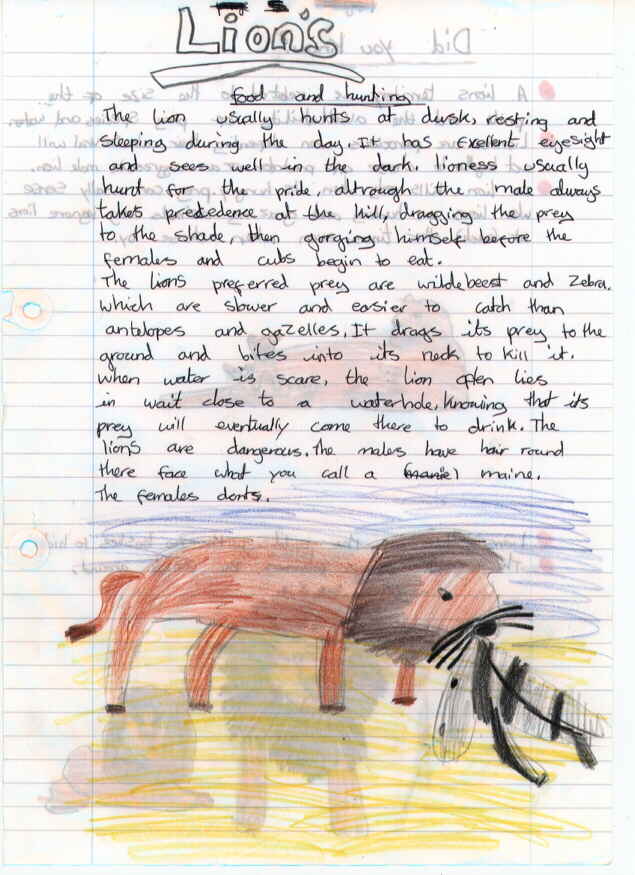 Lion's
food and hunting
The lion usually hunts at dusk, resting and
sleeping during the day. It has exellent eyesight
and sees well in the dark. lioness usually
hunt for the pride, altrough the male always
takes predecence at the kill, dragging the prey
to the shade, then gorging himself before the
females and cubs begin to eat.
The lions preferred prey are wildebeest and Zebra.
which are slower and easier to catch than
antelopes and gazelles. It drags its prey to the
ground and bites into its neck to kill it.
when water is scare, the lion often lies
in wait close to a waterhole, knowing that its
prey will eventually come there to drink. The
lions are dangerous. the males have hair round
there face what you call a maine.
The females don't.